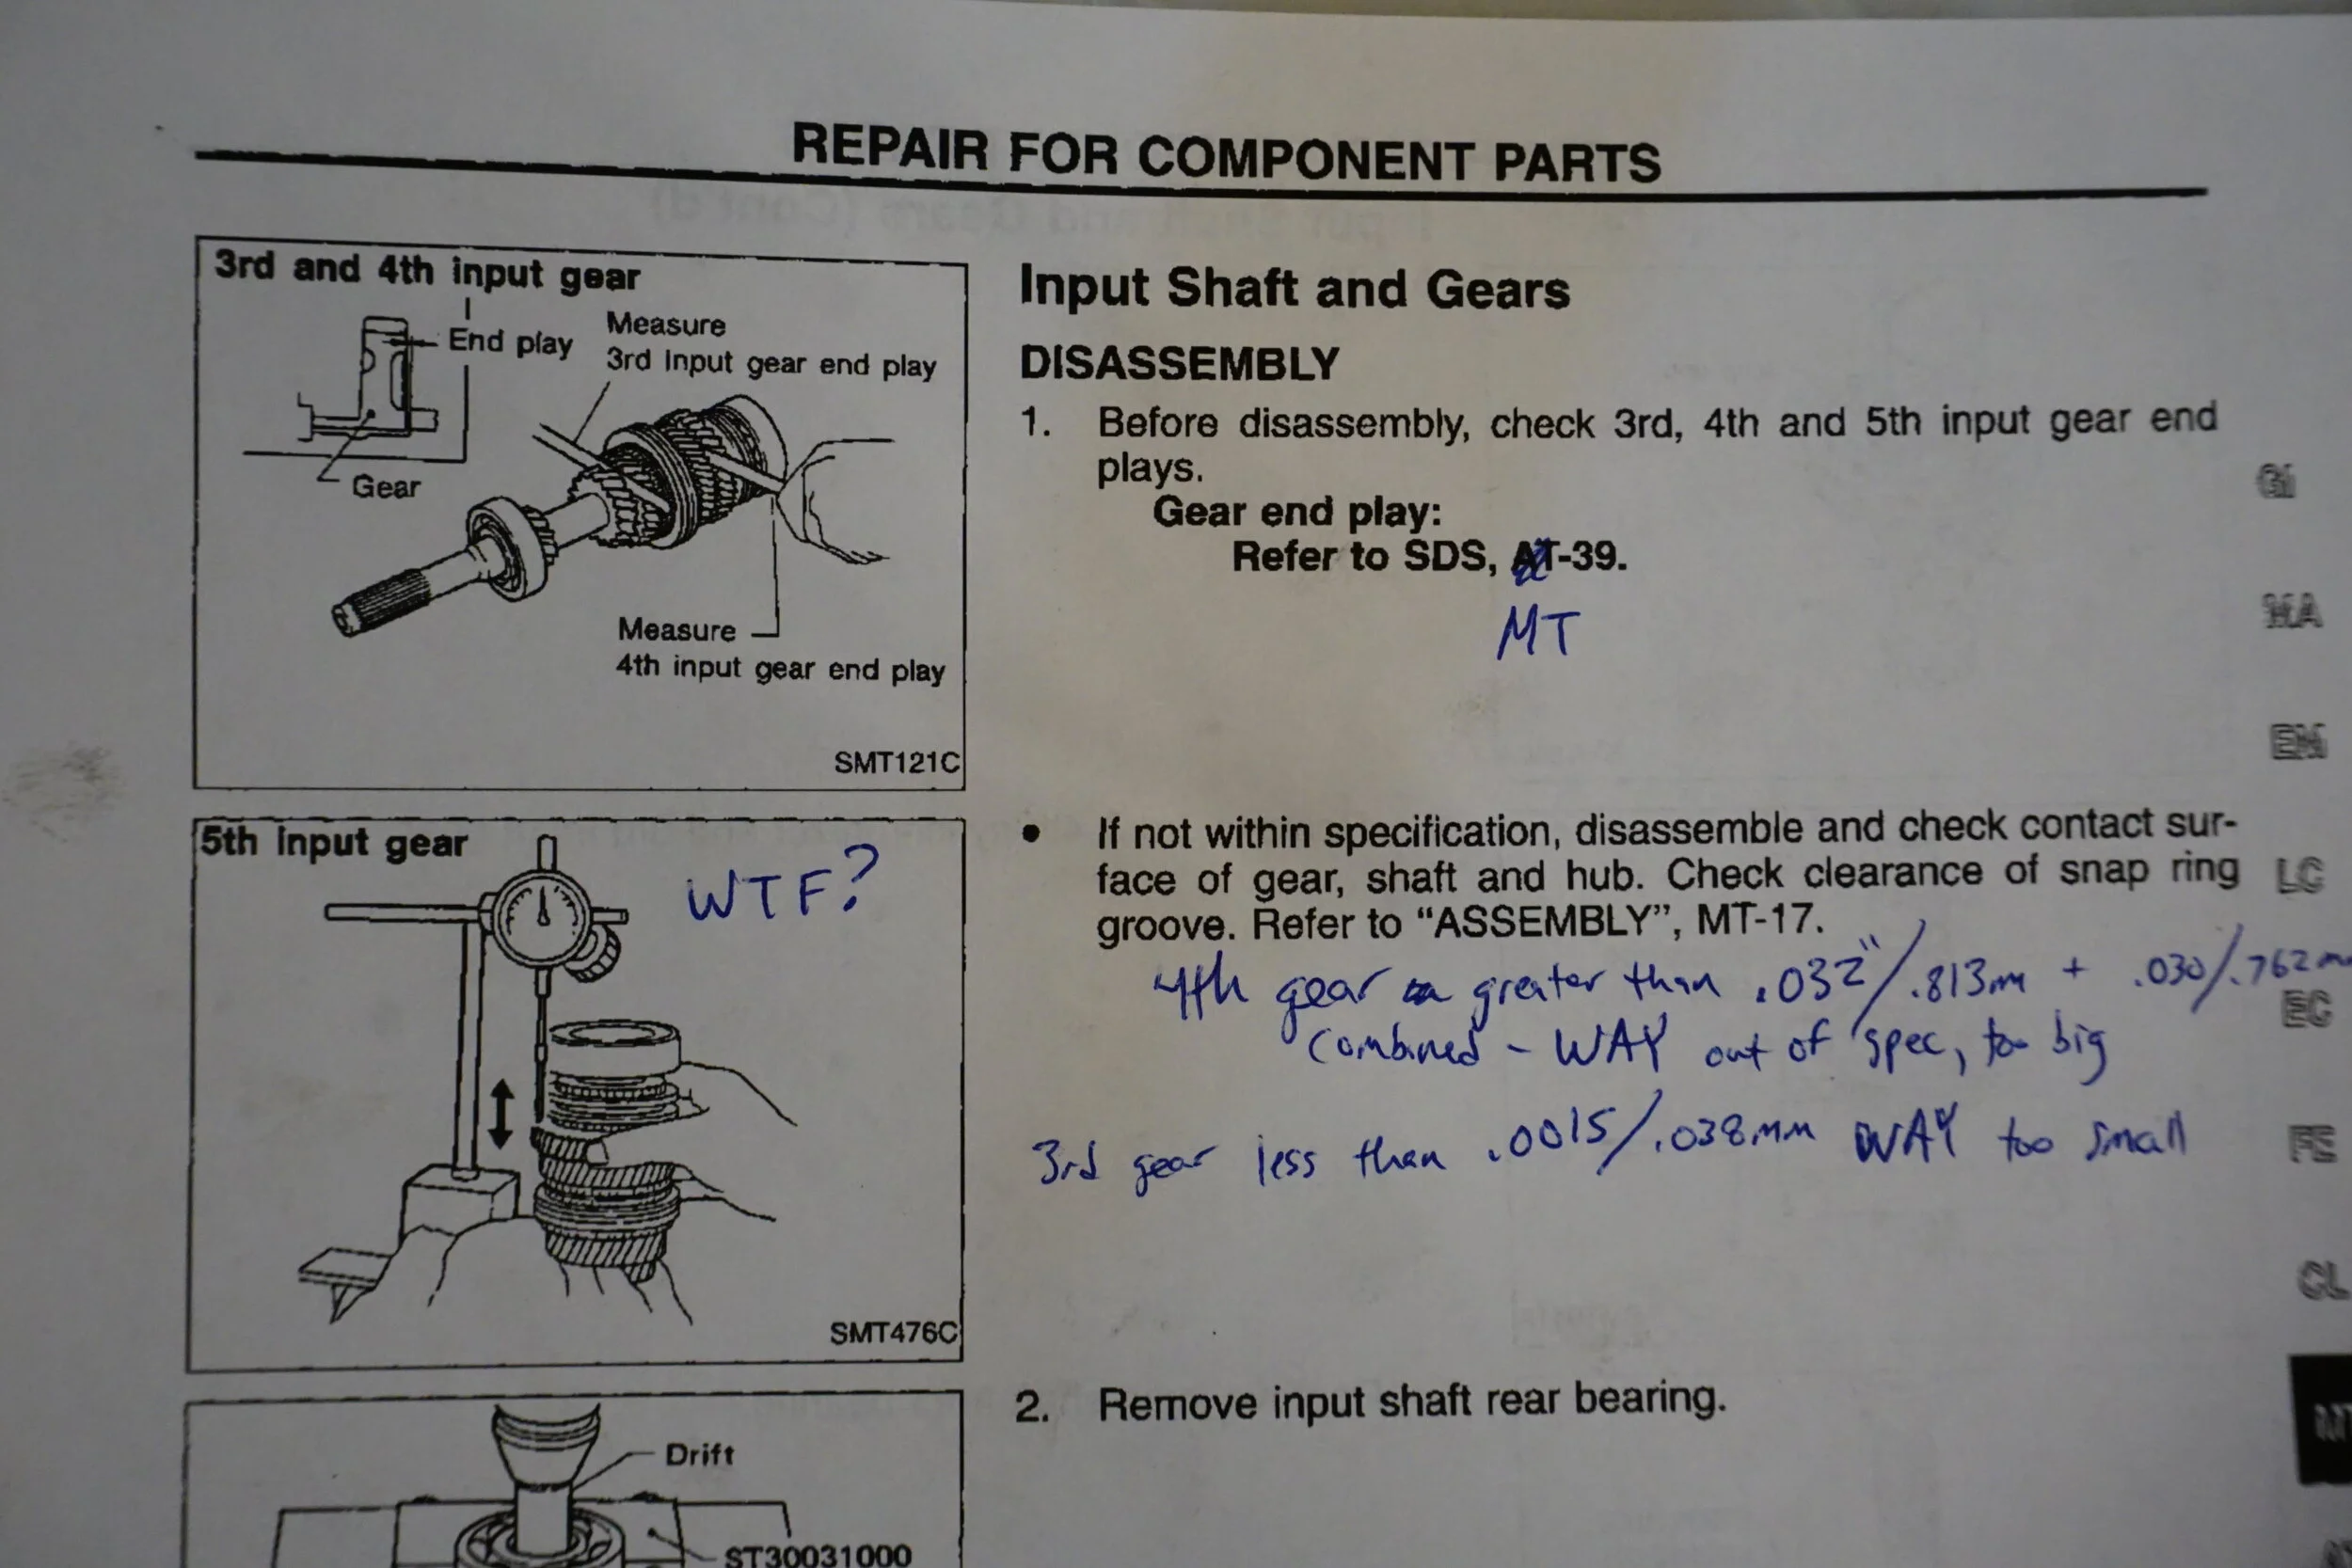 REPAIR FOR COMPONENT PARTS
3rd and 4th input gear
End play
Measure
3rd input gear end play
Gear
Measure
4th input gear end play
SMT121C
Input Shaft and Gears
DISASSEMBLY
1. Before disassembly, check 3rd, 4th and 5th input gear end
plays.
Gear end play:
Refer to SDS, AT-39.
MT
GI
MA
EM
LC
EC
FE
CL
MT
5th input gear
WTF?
SMT476C
• If not within specification, disassemble and check contact sur-
face of gear, shaft and hub. Check clearance of snap ring
groove. Refer to “ASSEMBLY”, MT-17.
4th gear greater than .032"/.813mm + .030/.762m
combined - WAY out of spec, too big
3rd gear less than .0015/.038mm WAY too small
Drift
ST30031000
2. Remove input shaft rear bearing.